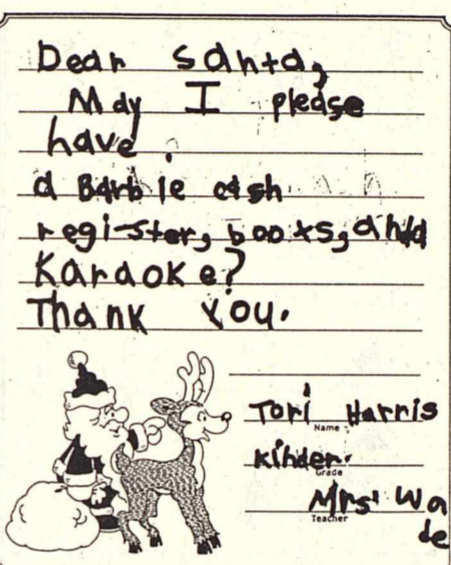 Dear Santa,
May I please
have
a Barbie cash
register, books, and
Karaoke?
Thank You.
Tori Harris
Name
Kinder.
Grade
Mrs. Wa
de
Teacher